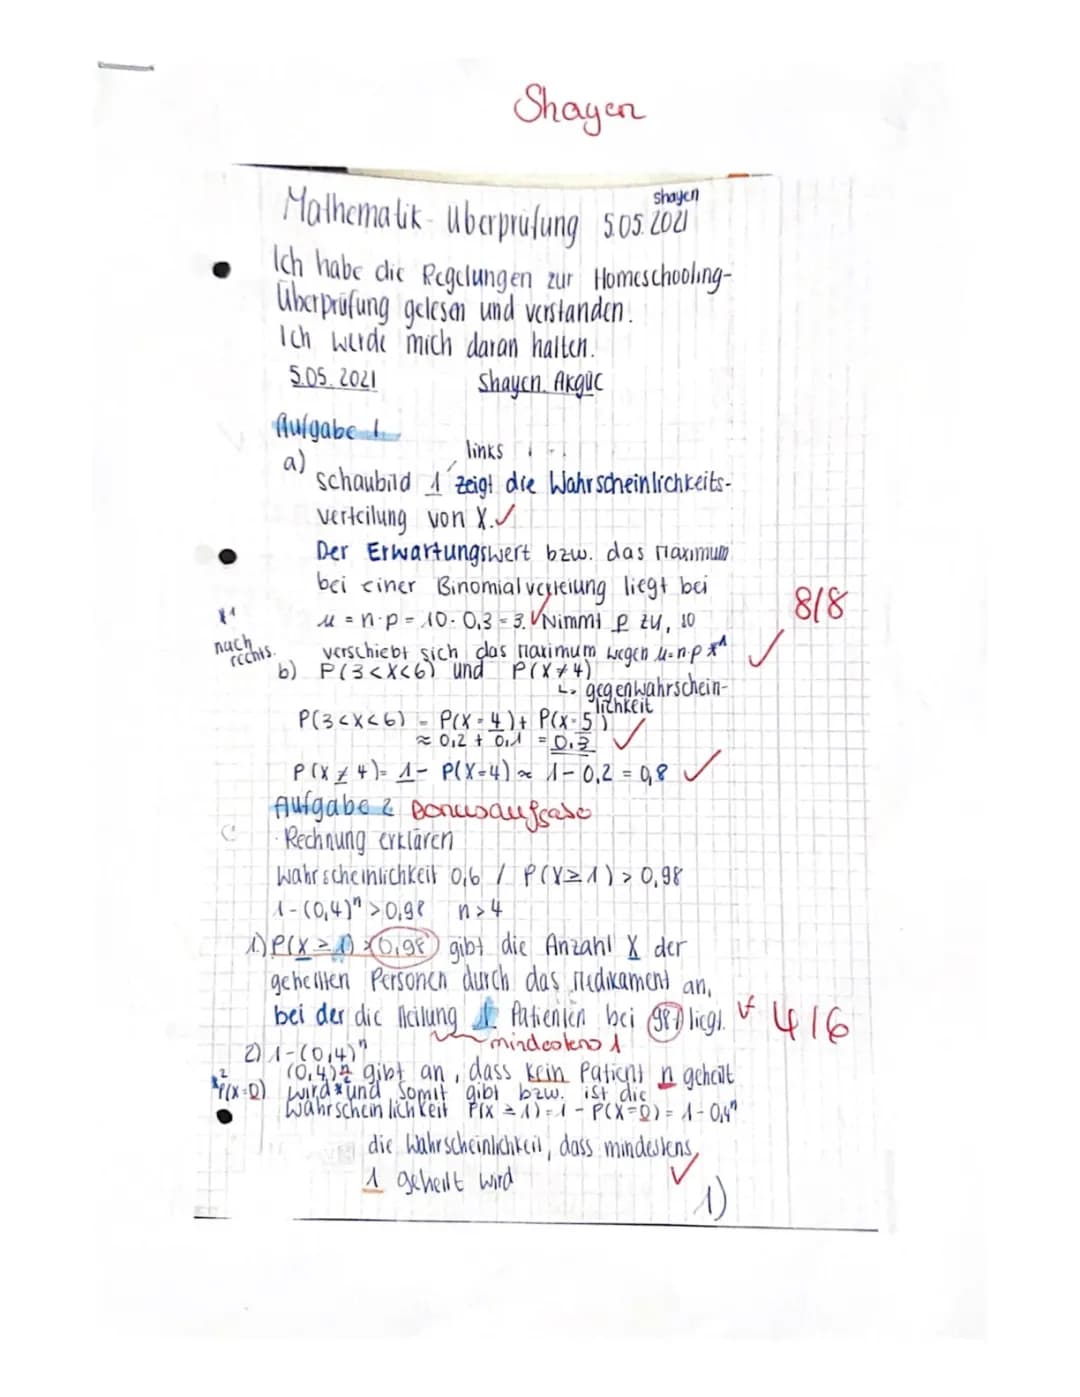 Shayen
Shayen
Mathematik-Überprüfung 5.05.2021
Ich habe die Regelungen zur Homeschooling-
Überprüfung gelesen und verstanden.
Ich werde mich daran halten.
5.05.2021 Shayen Akgüc
Aufgabe 1
links
a) Schaubild 1 zeigt die Wahrscheinlichkeits-
verteilung von X.✓
Der Erwartungswert bzw. das Maximum
bei einer Binomialverteilung liegt bei
μ = n·p = 10·0,3 = 3. ✓ Nimmt p zu, so
verschiebt sich das Maximum wegen μ=n·p *¹ ✓
8/8
*¹ nach rechts.
b) P(3<X<6) und P(X≠4)
↳ gegenwahrschein-
lichkeit
P(3<X<6) = P(X=4)+ P(X=5)
≈ 0,2 + 0,1 = 0,3 ✓
P(X≠4)= 1- P(X=4) ≈ 1-0,2 = 0,8 ✓
Aufgabe 2 Bonusaufgabe
· Rechnung erklären
Wahrscheinlichkeit 0,6 / P(X≥1) > 0,98
1-(0,4)ⁿ >0,98 n>4
1) P(X≥1)>0,98 gibt die Anzahl X der
geheilten Personen durch das Medikament an,
bei der die Heilung 1 Patienten bei 98% liegt.
4/6
mindestens 1
2) 1-(0,4)ⁿ
(0,4)ⁿ gibt an, dass kein Patient n geheilt
wird *² und somit gibt bzw. ist die
*² P(X=0)
Wahrscheinlichkeit P(X≥1)=1-P(X=0)= 1-0,4ⁿ
die Wahrscheinlichkeit, dass mindestens
1 geheilt wird ✓
1)